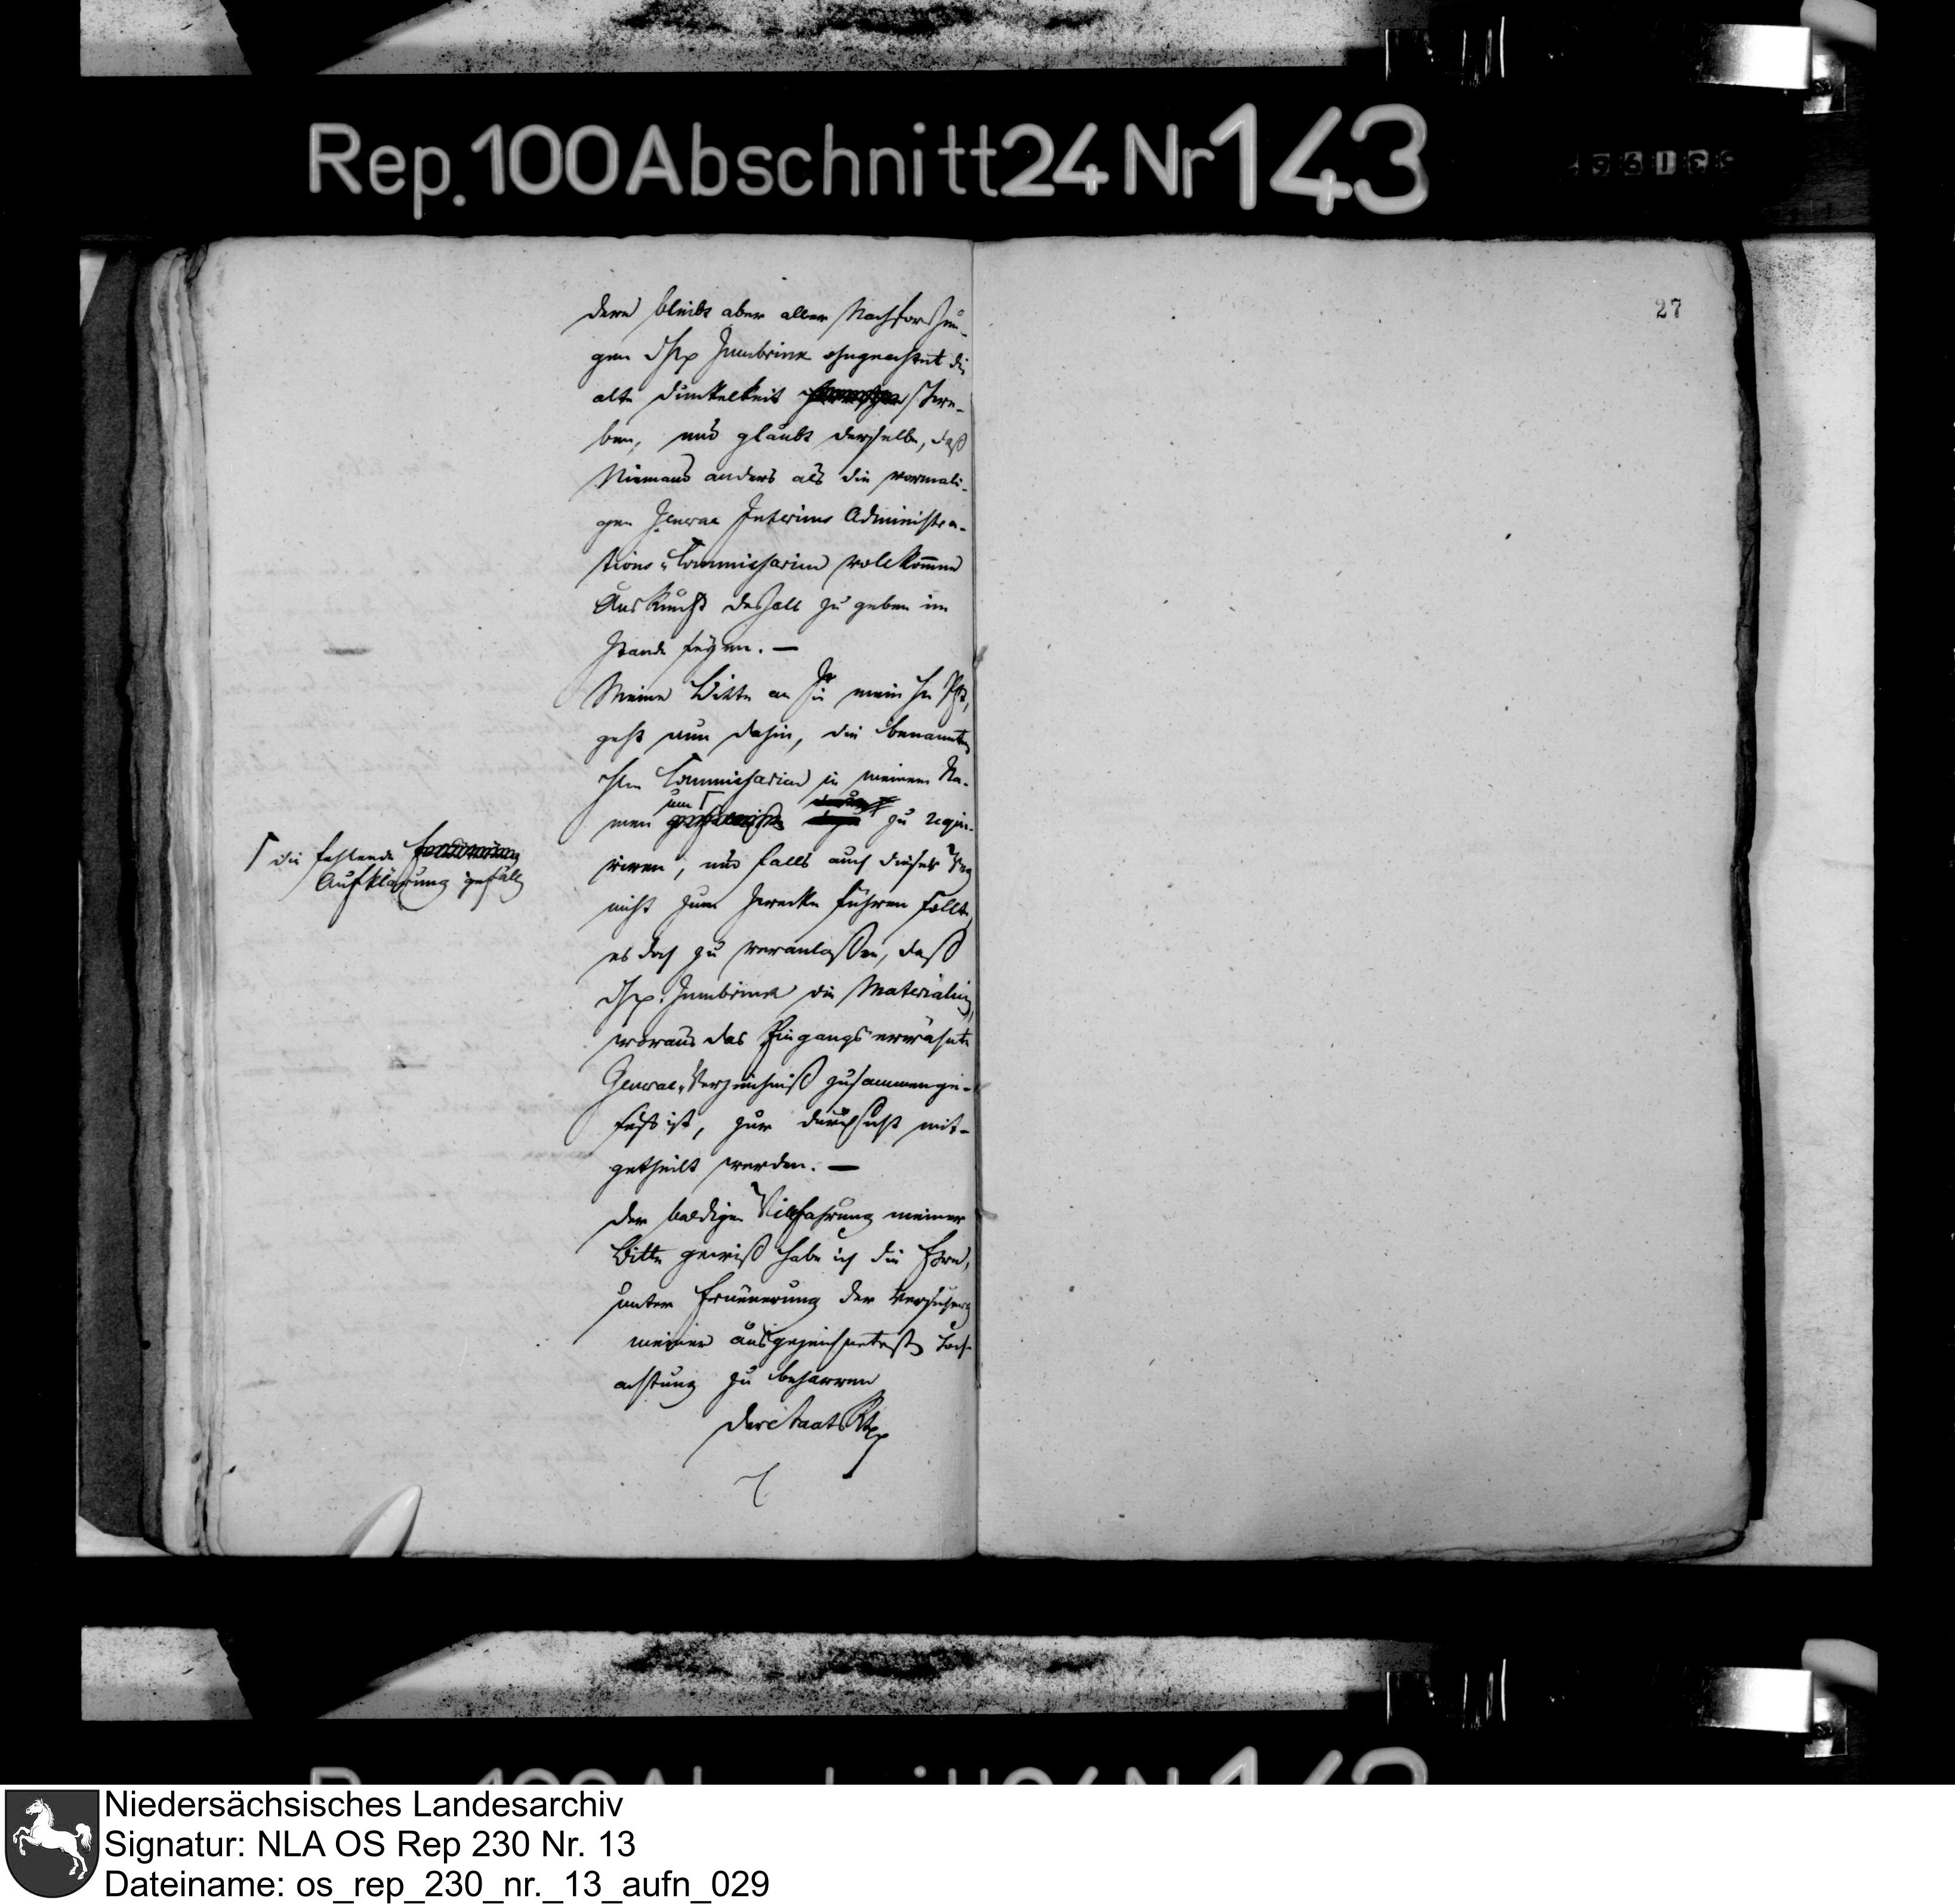 Rep. 100 Abschnitt 24 Nr 143
27
dern bleibt aber aller Nachforschun-
gen ohngeachtet die
alte Dunkelheit schwe-
ben, und glaubt derselbe, daß
Niemand anders als die vormali-
gen General Interims Administra-
tions-Commissarien vollkommen
Auskunft deshalb zu geben im
Stande seyen. —
Meine Bitte an Sie mein Hr
geht nun dahin, die benannten
Commissarien in meinem Na-
men um zu requi-
riren, und falls auch dieser Weg
nicht zum Zwecke führen sollte,
es doch zu veranlaßen, daß
die Materialien,
woraus das Eingangs erwähnte
General-Verzeichniß zusammenge-
setzt ist, zur Durchsicht mit-
getheilt werden. —
Der baldigen Willfahrung meiner
Bitte gewiß habe ich die Ehre,
unter Erneuerung der Versicherung
meiner ausgezeichnetesten Hoch-
achtung zu beharren
Der Staats
Γ die fehlende
Aufklärung gefällig
Niedersächsisches Landesarchiv
Signatur: NLA OS Rep 230 Nr. 13
Dateiname: os_rep_230_nr._13_aufn_029